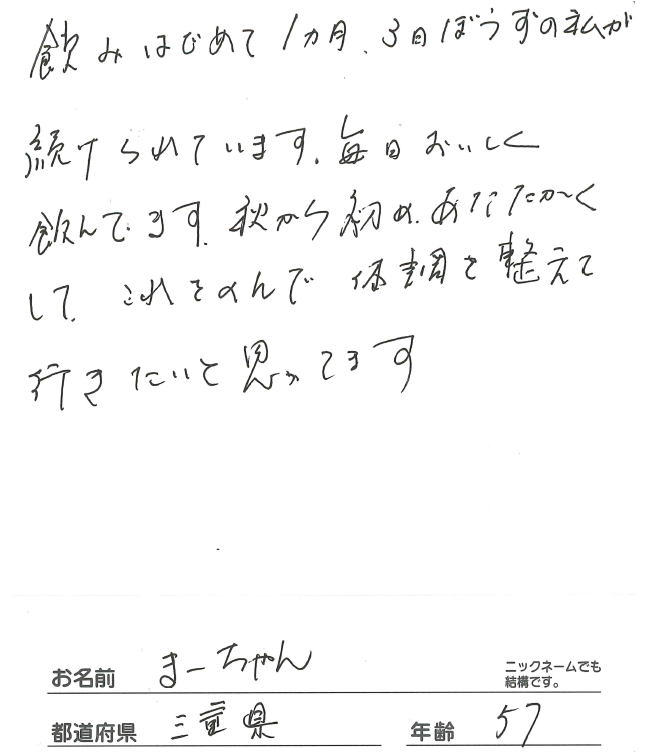 飲みはじめて1カ月、3日ぼうずの私が
続けられています。毎日おいしく
飲んでます。秋から初め、あたたか〜く
して、これをのんで体調を整えて
行きたいと思ってます
お名前 まーちゃん ニックネームでも
結構です。
都道府県 三重県 年齢 57